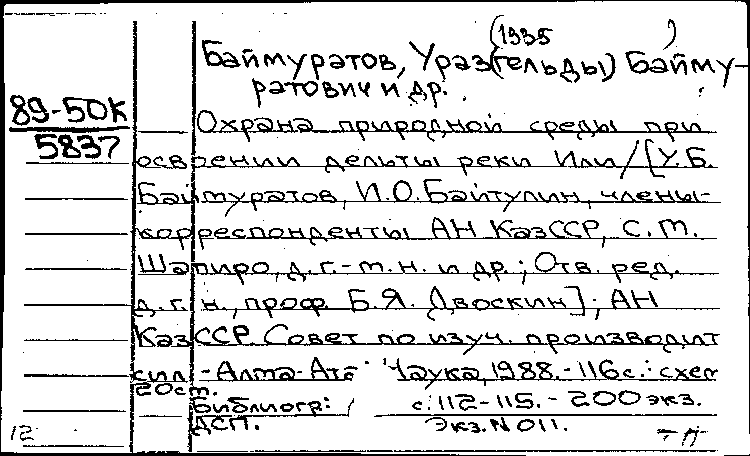 (1935 )
Баймуратов, Ураз(гельды) Байму-
ратович и др.
89-50К
5837
Охрана природной среды при
освоении дельты реки Или/[У.Б.
Баймуратов, И.О. Байтулин, члены-
корреспонденты АН КазССР, С.М.
Шапиро, д.г.-м.н. и др.; Отв. ред.
д.г.н., проф. Б.Я. Двоскин]; АН
КазССР. Совет по изуч. производит
сил. - Алма-Ата: Наука, 1988. - 116 с.: схем
20 см.
Библиогр: с. 112-115. - 200 экз.
ДСП. Экз. N 011.
12